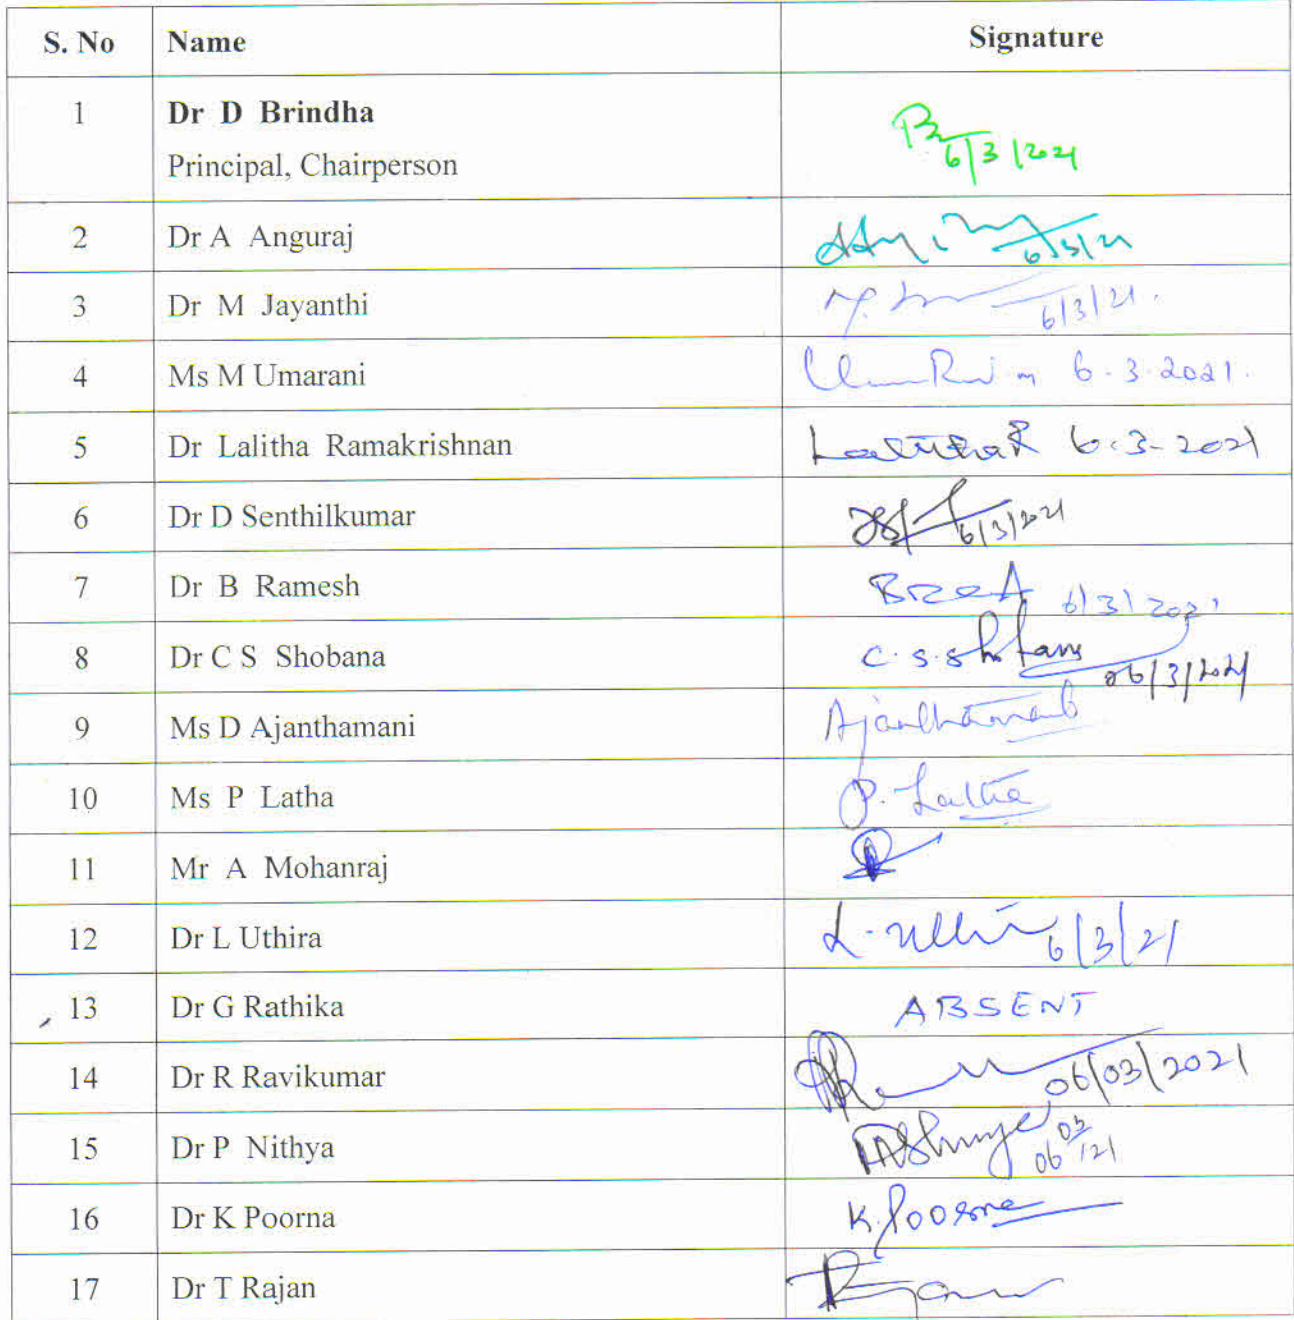 S. No Name Signature
1 Dr D Brindha
Principal, Chairperson
6/3/2021
2 Dr A Anguraj 6/3/21
3 Dr M Jayanthi 6/3/21.
4 Ms M Umarani 6.3.2021.
5 Dr Lalitha Ramakrishnan LalithaR 6.3-2021
6 Dr D Senthilkumar 6/3/2021
7 Dr B Ramesh 6/3/2021
8 Dr C S Shobana 06/3/2021
9 Ms D Ajanthamani Ajanthamani
10 Ms P Latha P. Latha
11 Mr A Mohanraj
12 Dr L Uthira L. Uthira 6/3/21
13 Dr G Rathika ABSENT
14 Dr R Ravikumar 06/03/2021
15 Dr P Nithya 06/03/21
16 Dr K Poorna K. Poorna
17 Dr T Rajan Rajan